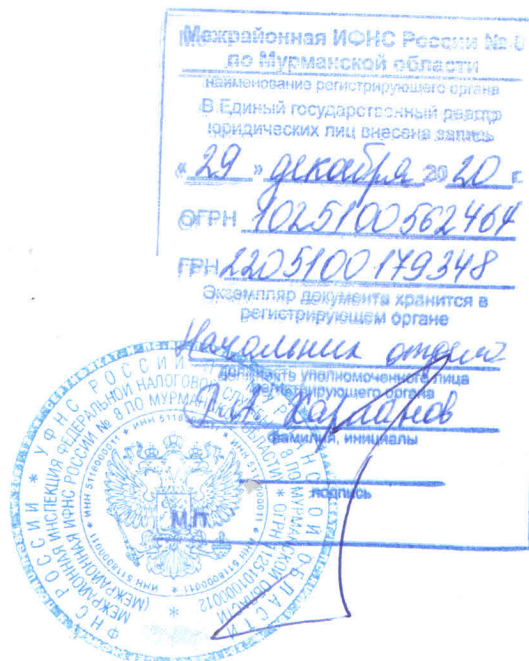 Межрайонная ИФНС России № 8
по Мурманской области
наименование регистрирующего органа
В Единый государственный реестр
юридических лиц внесена запись
« 29 » декабря 20 20 г.
ОГРН 1025100562464
ГРН 2205100179348
Экземпляр документа хранится в
регистрирующем органе
Начальник отдела
должность уполномоченного лица
регистрирующего органа
фамилия, инициалы
подпись
М.П.
ФНС РОССИИ * УФНС РОССИИ ПО МУРМАНСКОЙ ОБЛАСТИ
МЕЖРАЙОННАЯ ИНСПЕКЦИЯ ФЕДЕРАЛЬНОЙ НАЛОГОВОЙ СЛУЖБЫ № 8 ПО МУРМАНСКОЙ ОБЛАСТИ
(МЕЖРАЙОННАЯ ИФНС РОССИИ № 8 ПО МУРМАНСКОЙ ОБЛАСТИ) * ОГРН